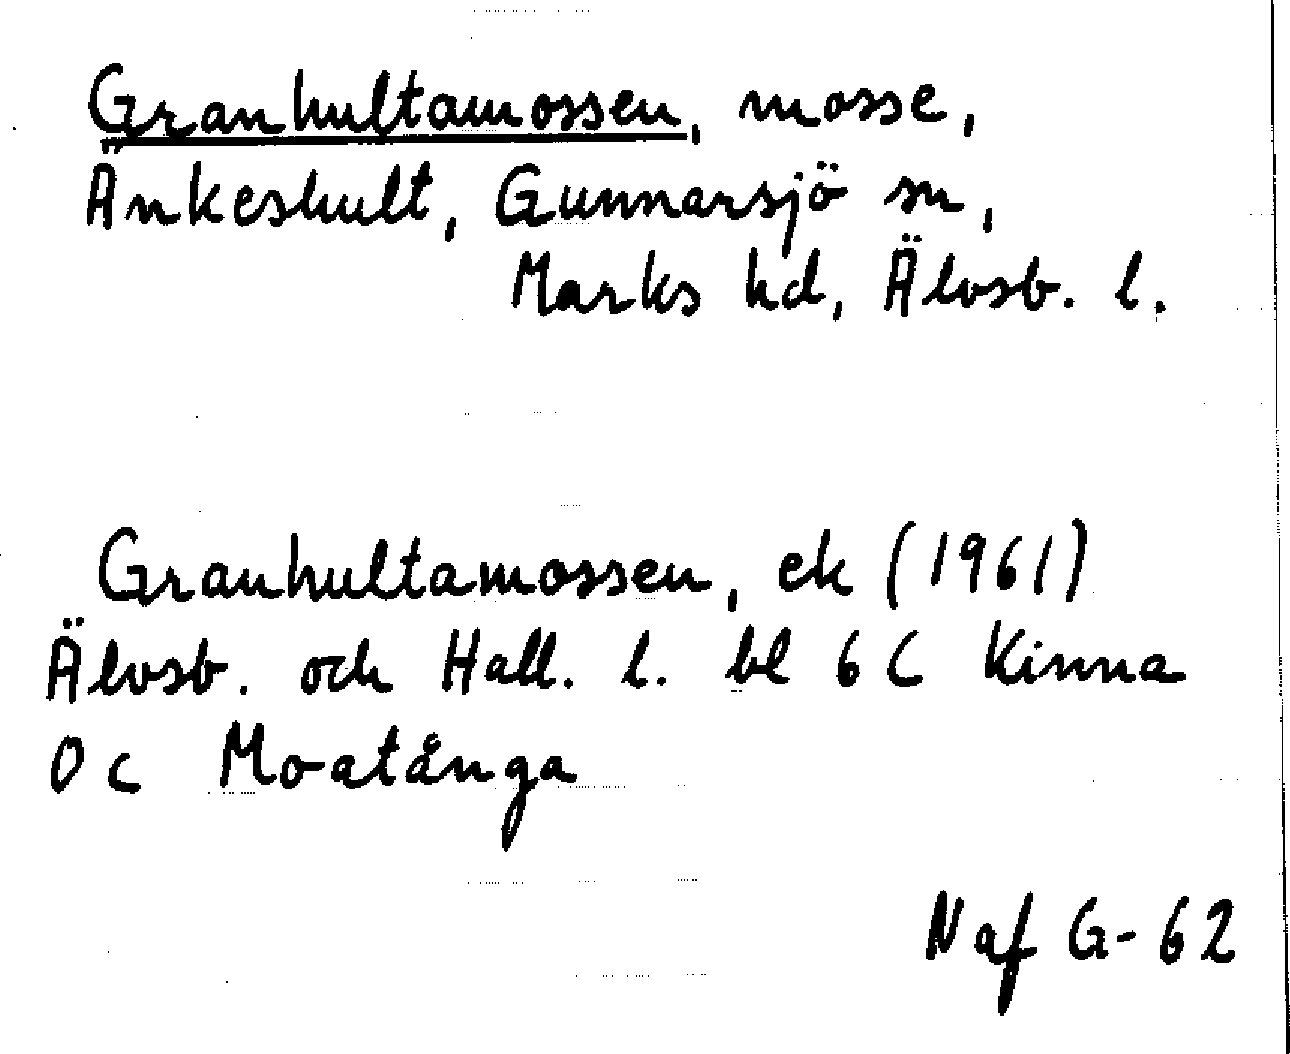 Granhultamossen, mosse,
Änkeshult, Gunnarsjö sn,
Marks hd, Älvsb. l.
Granhultamossen, ek (1961)
Älvsb. och Hall. l. bl 6 C Kinna
0 c Moatånga
N af G-62